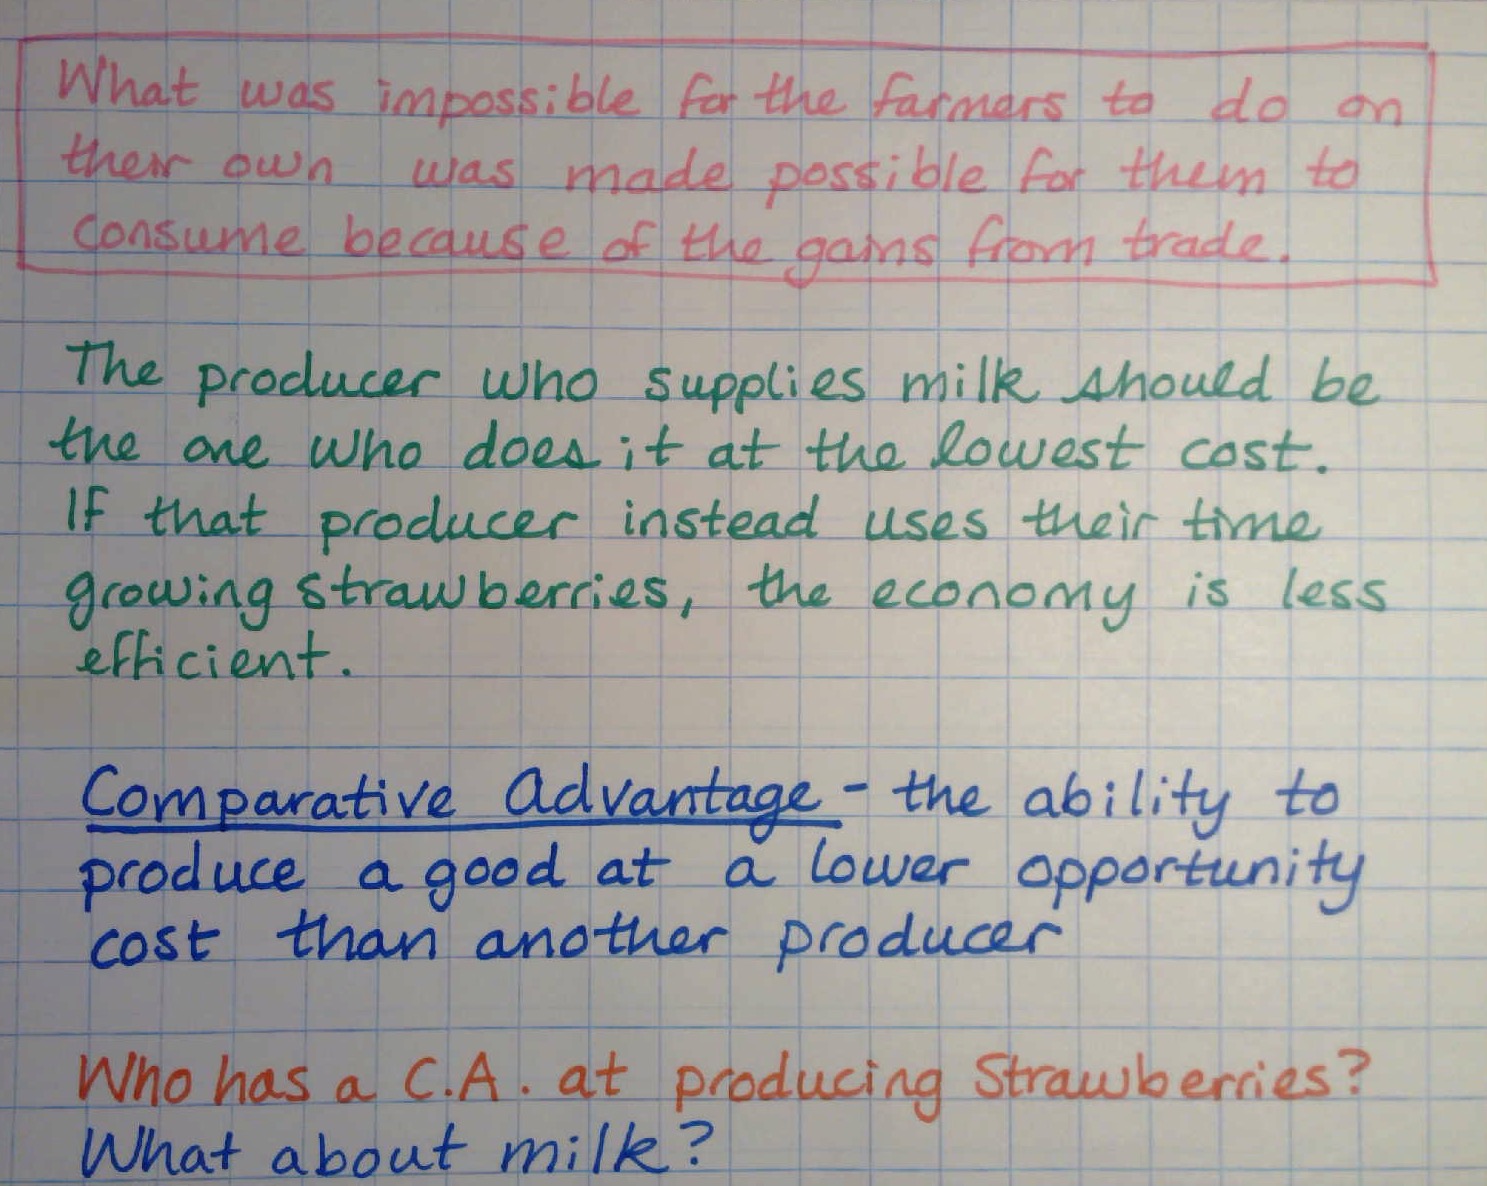 What was impossible for the farmers to do on
their own was made possible for them to
consume because of the gains from trade.
The producer who supplies milk should be
the one who does it at the lowest cost.
If that producer instead uses their time
growing strawberries, the economy is less
efficient.
Comparative Advantage - the ability to
produce a good at a lower opportunity
cost than another producer
Who has a C.A. at producing Strawberries?
What about milk?